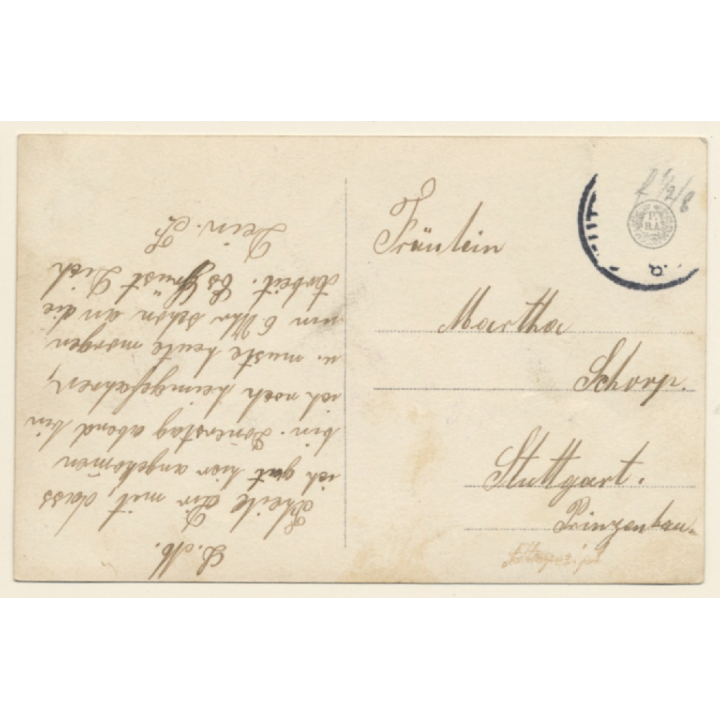 L. M.
Theile Dir mit, dass
ich gut hier angekomen
bin. Donerstag abend bin
ich noch heimgefahren,
u. muste heute morgen
um 6 Uhr schon an die
Arbeit. Es Grüst Dich
Dein. L.
Fräulein
Martha
Schorp.
Stuttgart.
Prinzenbau.
P.
BA